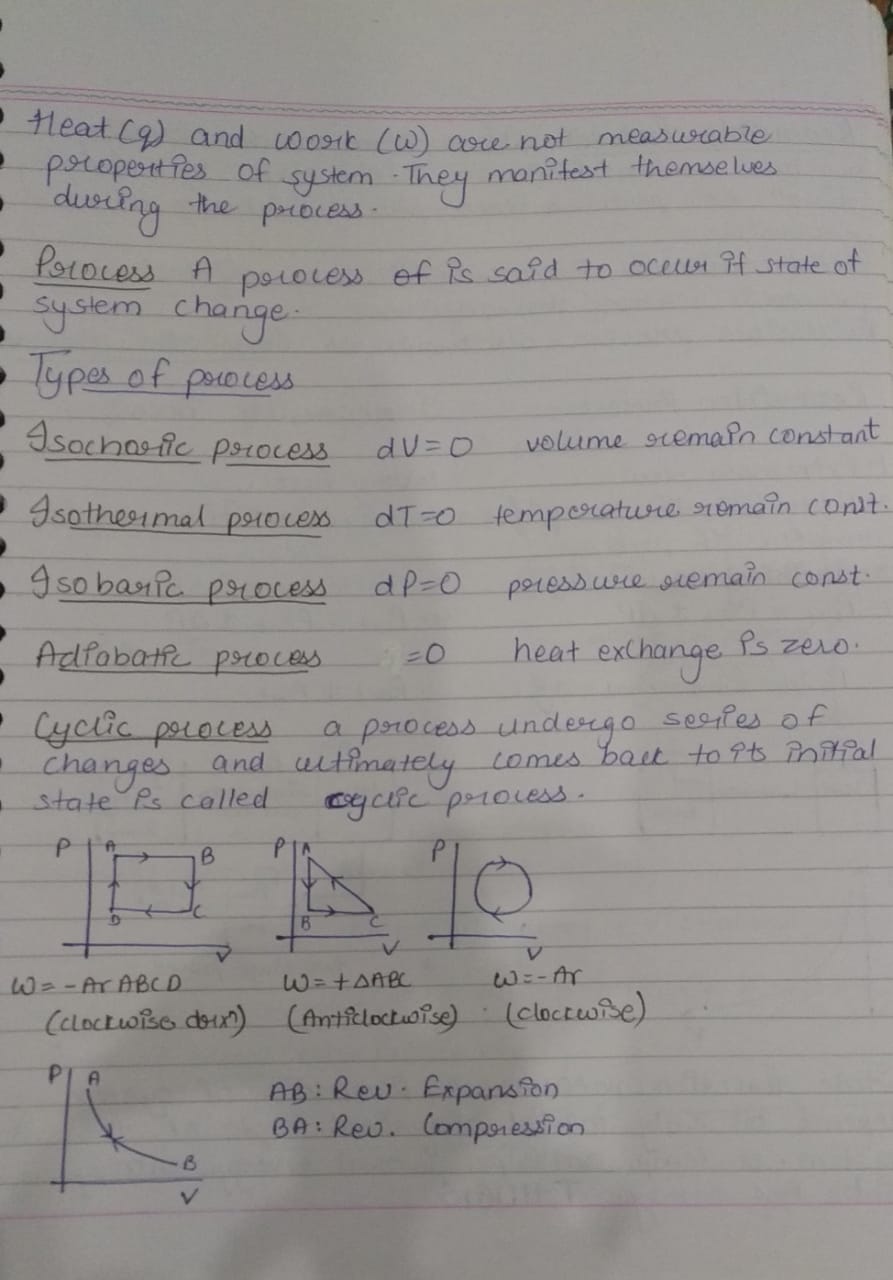 Heat (q) and work (w) are not measurable
properties of system. They manifest themselves
during the process.
Process A process of is said to occur if state of
system change.
Types of process
Isochoric process dV=0 volume remain constant
Isothermal process dT=0 temperature remain const.
Isobaric process dP=0 pressure remain const.
Adiabatic process =0 heat exchange is zero.
Cyclic process a process undergo series of
changes and ultimately comes back to its initial
state is called cyclic process.
P A B P A P
D C B C
V V V
W = - Ar ABCD W = + ΔABC W = - Ar
(clockwise dorxn) (Anticlockwise) (clockwise)
P A AB : Rev. Expansion
BA : Rev. Compression
B
V